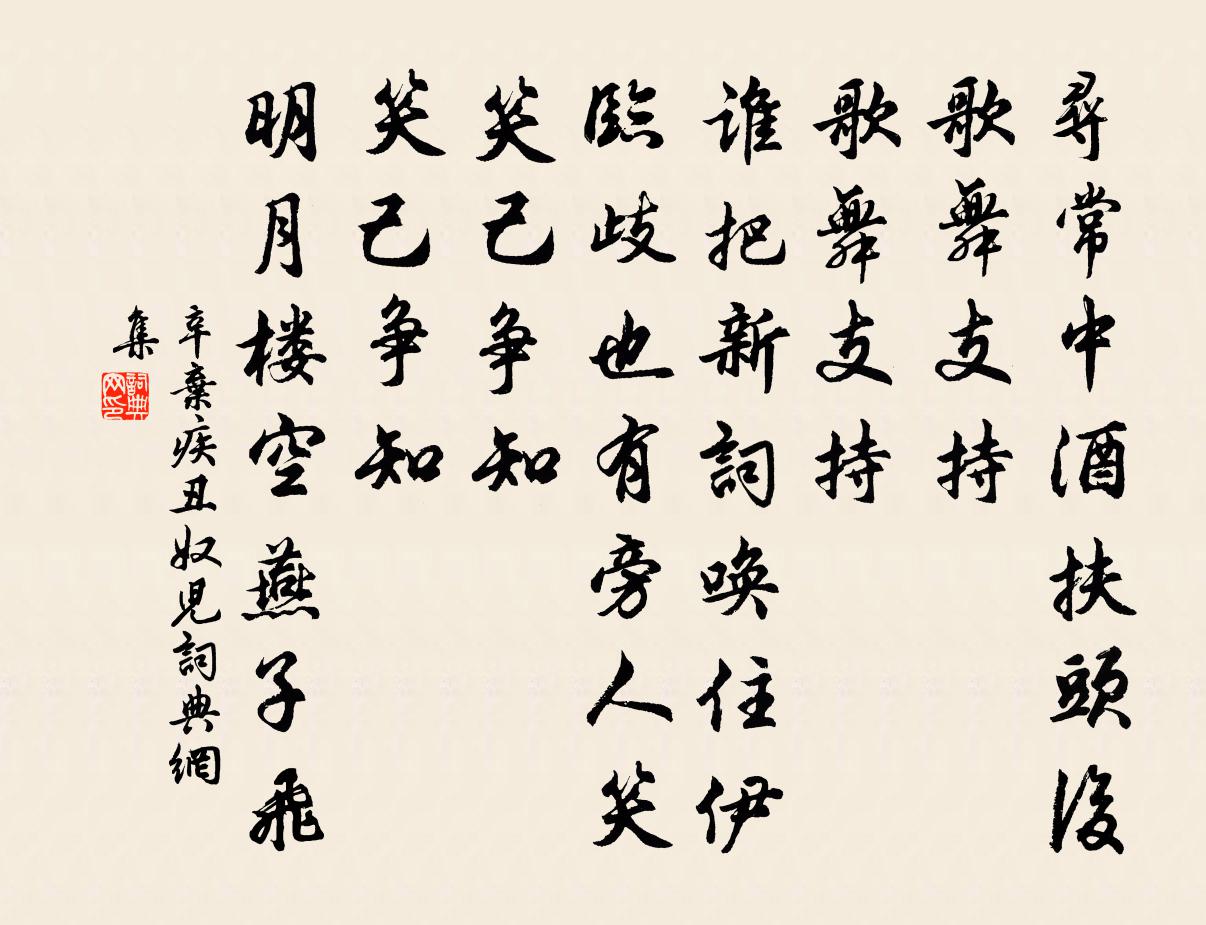 尋常中酒扶頭後
歌舞支持
歌舞支持
谁把新詞喚住伊
臨歧也有旁人笑
笑己争知
笑己争知
明月楼空燕子飛
辛棄疾丑奴児詞典網
集
詞典网印